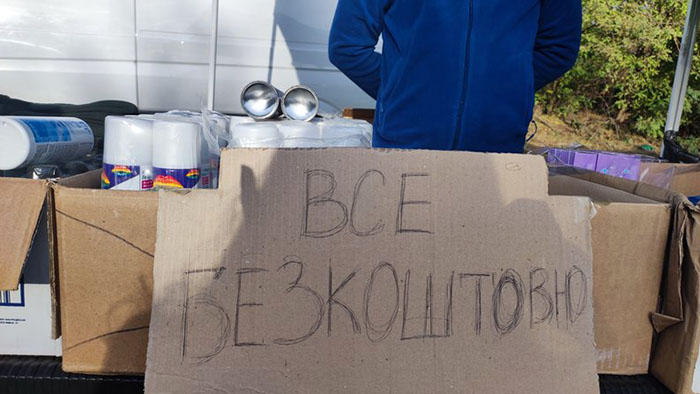 ВСЕ
БЕЗКОШТОВНО